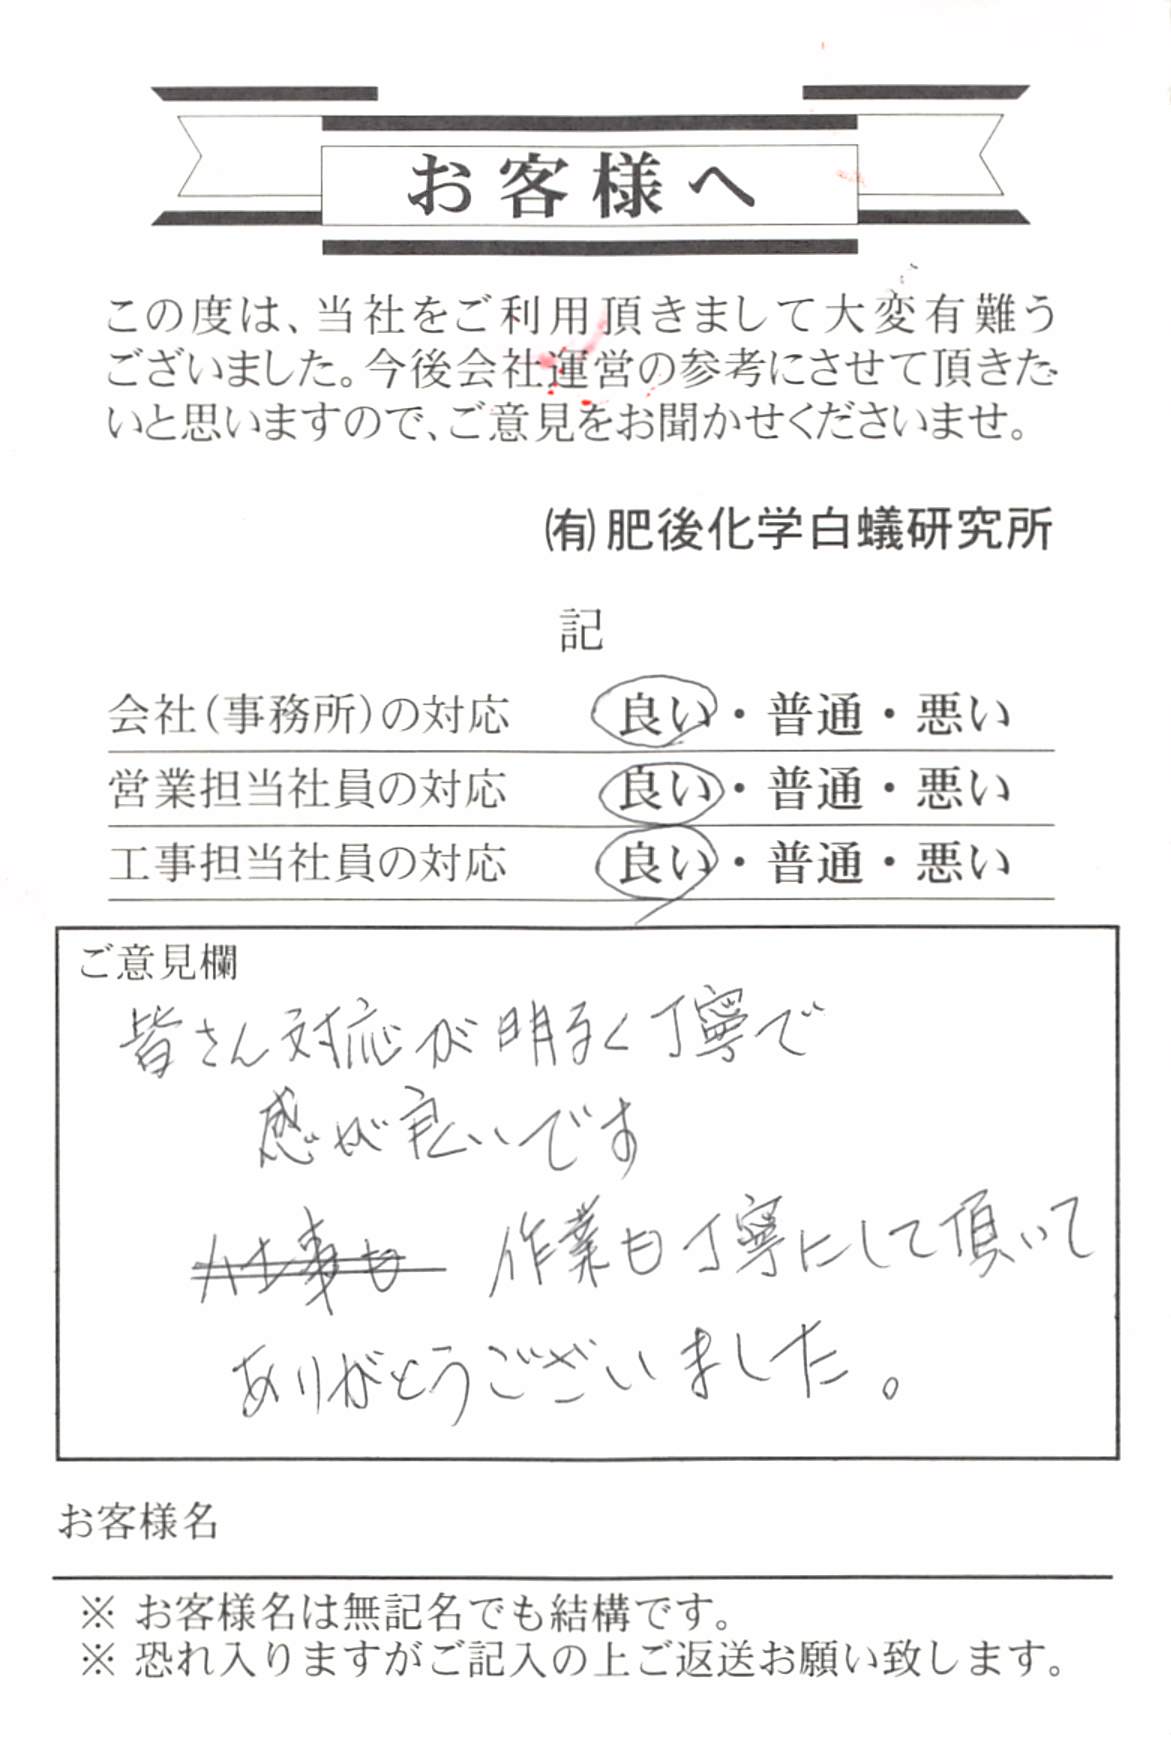 お客様へ
この度は、当社をご利用頂きまして大変有難う
ございました。今後会社運営の参考にさせて頂きた
いと思いますので、ご意見をお聞かせくださいませ。
㈲肥後化学白蟻研究所
記
会社(事務所)の対応 良い・普通・悪い
営業担当社員の対応 良い・普通・悪い
工事担当社員の対応 良い・普通・悪い
ご意見欄
皆さん対応が明るく丁寧で
感が良いです
仕事も 作業も丁寧にして頂いて
ありがとうございました。
お客様名
※ お客様名は無記名でも結構です。
※ 恐れ入りますがご記入の上ご返送お願い致します。